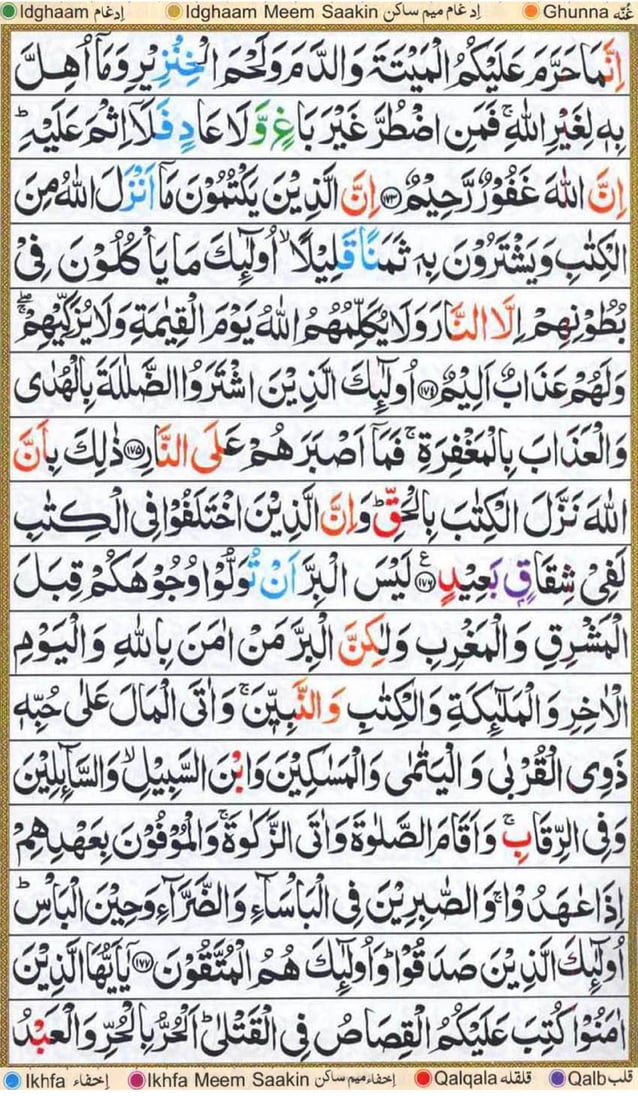 Idghaam ادغام Idghaam Meem Saakin ادغام میم ساکن Ghunna غُنّه
اِنَّمَا حَرَّمَ عَلَیْكُمُ الْمَیْتَةَ وَالدَّمَ وَلَحْمَ الْخِنْزِیْرِ وَمَاۤ اُهِلَّ
بِهٖ لِغَیْرِ اللّٰهِ ۚ فَمَنِ اضْطُرَّ غَیْرَ بَاغٍ وَّلَا عَادٍ فَلَاۤ اِثْمَ عَلَیْهِ ؕ
اِنَّ اللّٰهَ غَفُوْرٌ رَّحِیْمٌ ۝۱۷۳ اِنَّ الَّذِیْنَ یَكْتُمُوْنَ مَاۤ اَنْزَلَ اللّٰهُ مِنَ
الْكِتٰبِ وَیَشْتَرُوْنَ بِهٖ ثَمَنًا قَلِیْلًا ۙ اُولٰٓىِٕكَ مَا یَاْكُلُوْنَ فِیْ
بُطُوْنِهِمْ اِلَّا النَّارَ وَلَا یُكَلِّمُهُمُ اللّٰهُ یَوْمَ الْقِیٰمَةِ وَلَا یُزَكِّیْهِمْ ۖۚ
وَلَهُمْ عَذَابٌ اَلِیْمٌ ۝۱۷۴ اُولٰٓىِٕكَ الَّذِیْنَ اشْتَرَوُا الضَّلٰلَةَ بِالْهُدٰی
وَالْعَذَابَ بِالْمَغْفِرَةِ ۚ فَمَاۤ اَصْبَرَهُمْ عَلَی النَّارِ ۝۱۷۵ ذٰلِكَ بِاَنَّ
اللّٰهَ نَزَّلَ الْكِتٰبَ بِالْحَقِّ ؕ وَاِنَّ الَّذِیْنَ اخْتَلَفُوْا فِی الْكِتٰبِ
لَفِیْ شِقَاقٍۭ بَعِیْدٍ ۝۱۷۶ ع لَیْسَ الْبِرَّ اَنْ تُوَلُّوْا وُجُوْهَكُمْ قِبَلَ
الْمَشْرِقِ وَالْمَغْرِبِ وَلٰكِنَّ الْبِرَّ مَنْ اٰمَنَ بِاللّٰهِ وَالْیَوْمِ
الْاٰخِرِ وَالْمَلٰٓىِٕكَةِ وَالْكِتٰبِ وَالنَّبِیّٖنَ ۚ وَاٰتَی الْمَالَ عَلٰی حُبِّهٖ
ذَوِی الْقُرْبٰی وَالْیَتٰمٰی وَالْمَسٰكِیْنَ وَابْنَ السَّبِیْلِ ۙ وَالسَّآىِٕلِیْنَ
وَفِی الرِّقَابِ ۚ وَاَقَامَ الصَّلٰوةَ وَاٰتَی الزَّكٰوةَ ۚ وَالْمُوْفُوْنَ بِعَهْدِهِمْ
اِذَا عٰهَدُوْا ۚ وَالصّٰبِرِیْنَ فِی الْبَاْسَآءِ وَالضَّرَّآءِ وَحِیْنَ الْبَاْسِ ؕ
اُولٰٓىِٕكَ الَّذِیْنَ صَدَقُوْا ؕ وَاُولٰٓىِٕكَ هُمُ الْمُتَّقُوْنَ ۝۱۷۷ یٰۤاَیُّهَا الَّذِیْنَ
اٰمَنُوْا كُتِبَ عَلَیْكُمُ الْقِصَاصُ فِی الْقَتْلٰی ؕ اَلْحُرُّ بِالْحُرِّ وَالْعَبْدُ
Ikhfa إخفاء Ikhfa Meem Saakin إخفاء میم ساکن Qalqala قلقله Qalb قلب